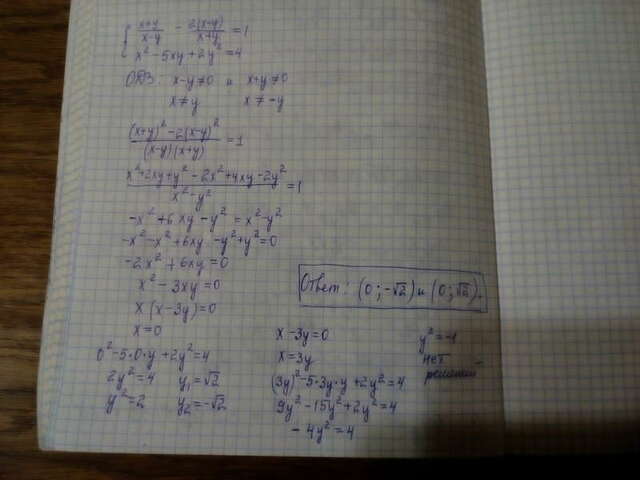 { (x+y)/(x-y) - 2(x-y)/(x+y) = 1
x² - 5xy + 2y² = 4
ОДЗ: x-y≠0 и x+y≠0
x≠y x≠-y
((x+y)² - 2(x-y)²)/((x-y)(x+y)) = 1
(x²+2xy+y² - 2x²+4xy-2y²)/(x²-y²) = 1
-x²+6xy-y² = x²-y²
-x²-x²+6xy-y²+y²=0
-2x²+6xy=0
x²-3xy=0
x(x-3y)=0
x=0
0²-5·0·y+2y²=4
2y²=4 y₁=√2
y²=2 y₂=-√2
x-3y=0
x=3y
(3y)²-5·3y·y+2y²=4
9y²-15y²+2y²=4
-4y²=4
y²=-1
нет
решений
Ответ: (0;-√2) и (0;√2).